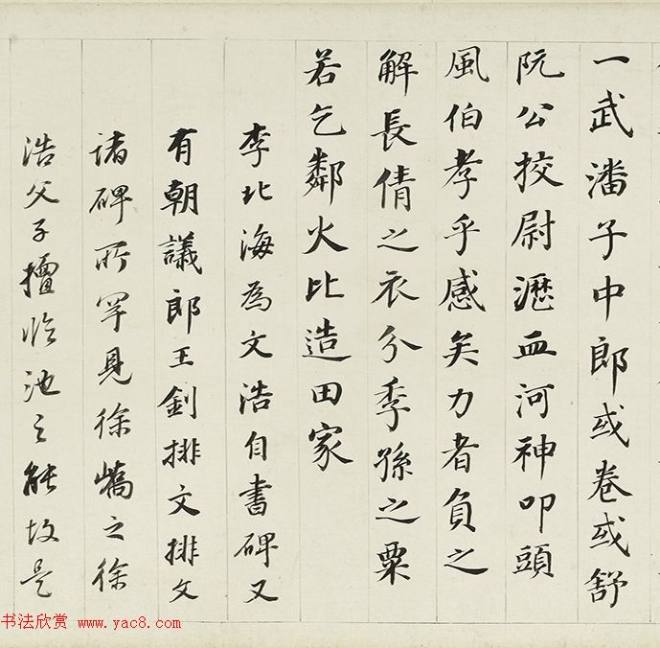 一武潘子中郎或卷或舒
阮公挍尉瀝血河神叩頭
風伯孝乎感矣力者負之
解長倩之衣分季孫之粟
若乞鄰火比造田家
李北海為文浩自書碑又
有朝議郎王釗排文排文
諸碑所罕見徐嶠之徐
浩父子擅臨池之能故是
书法欣赏 www.yac8.com